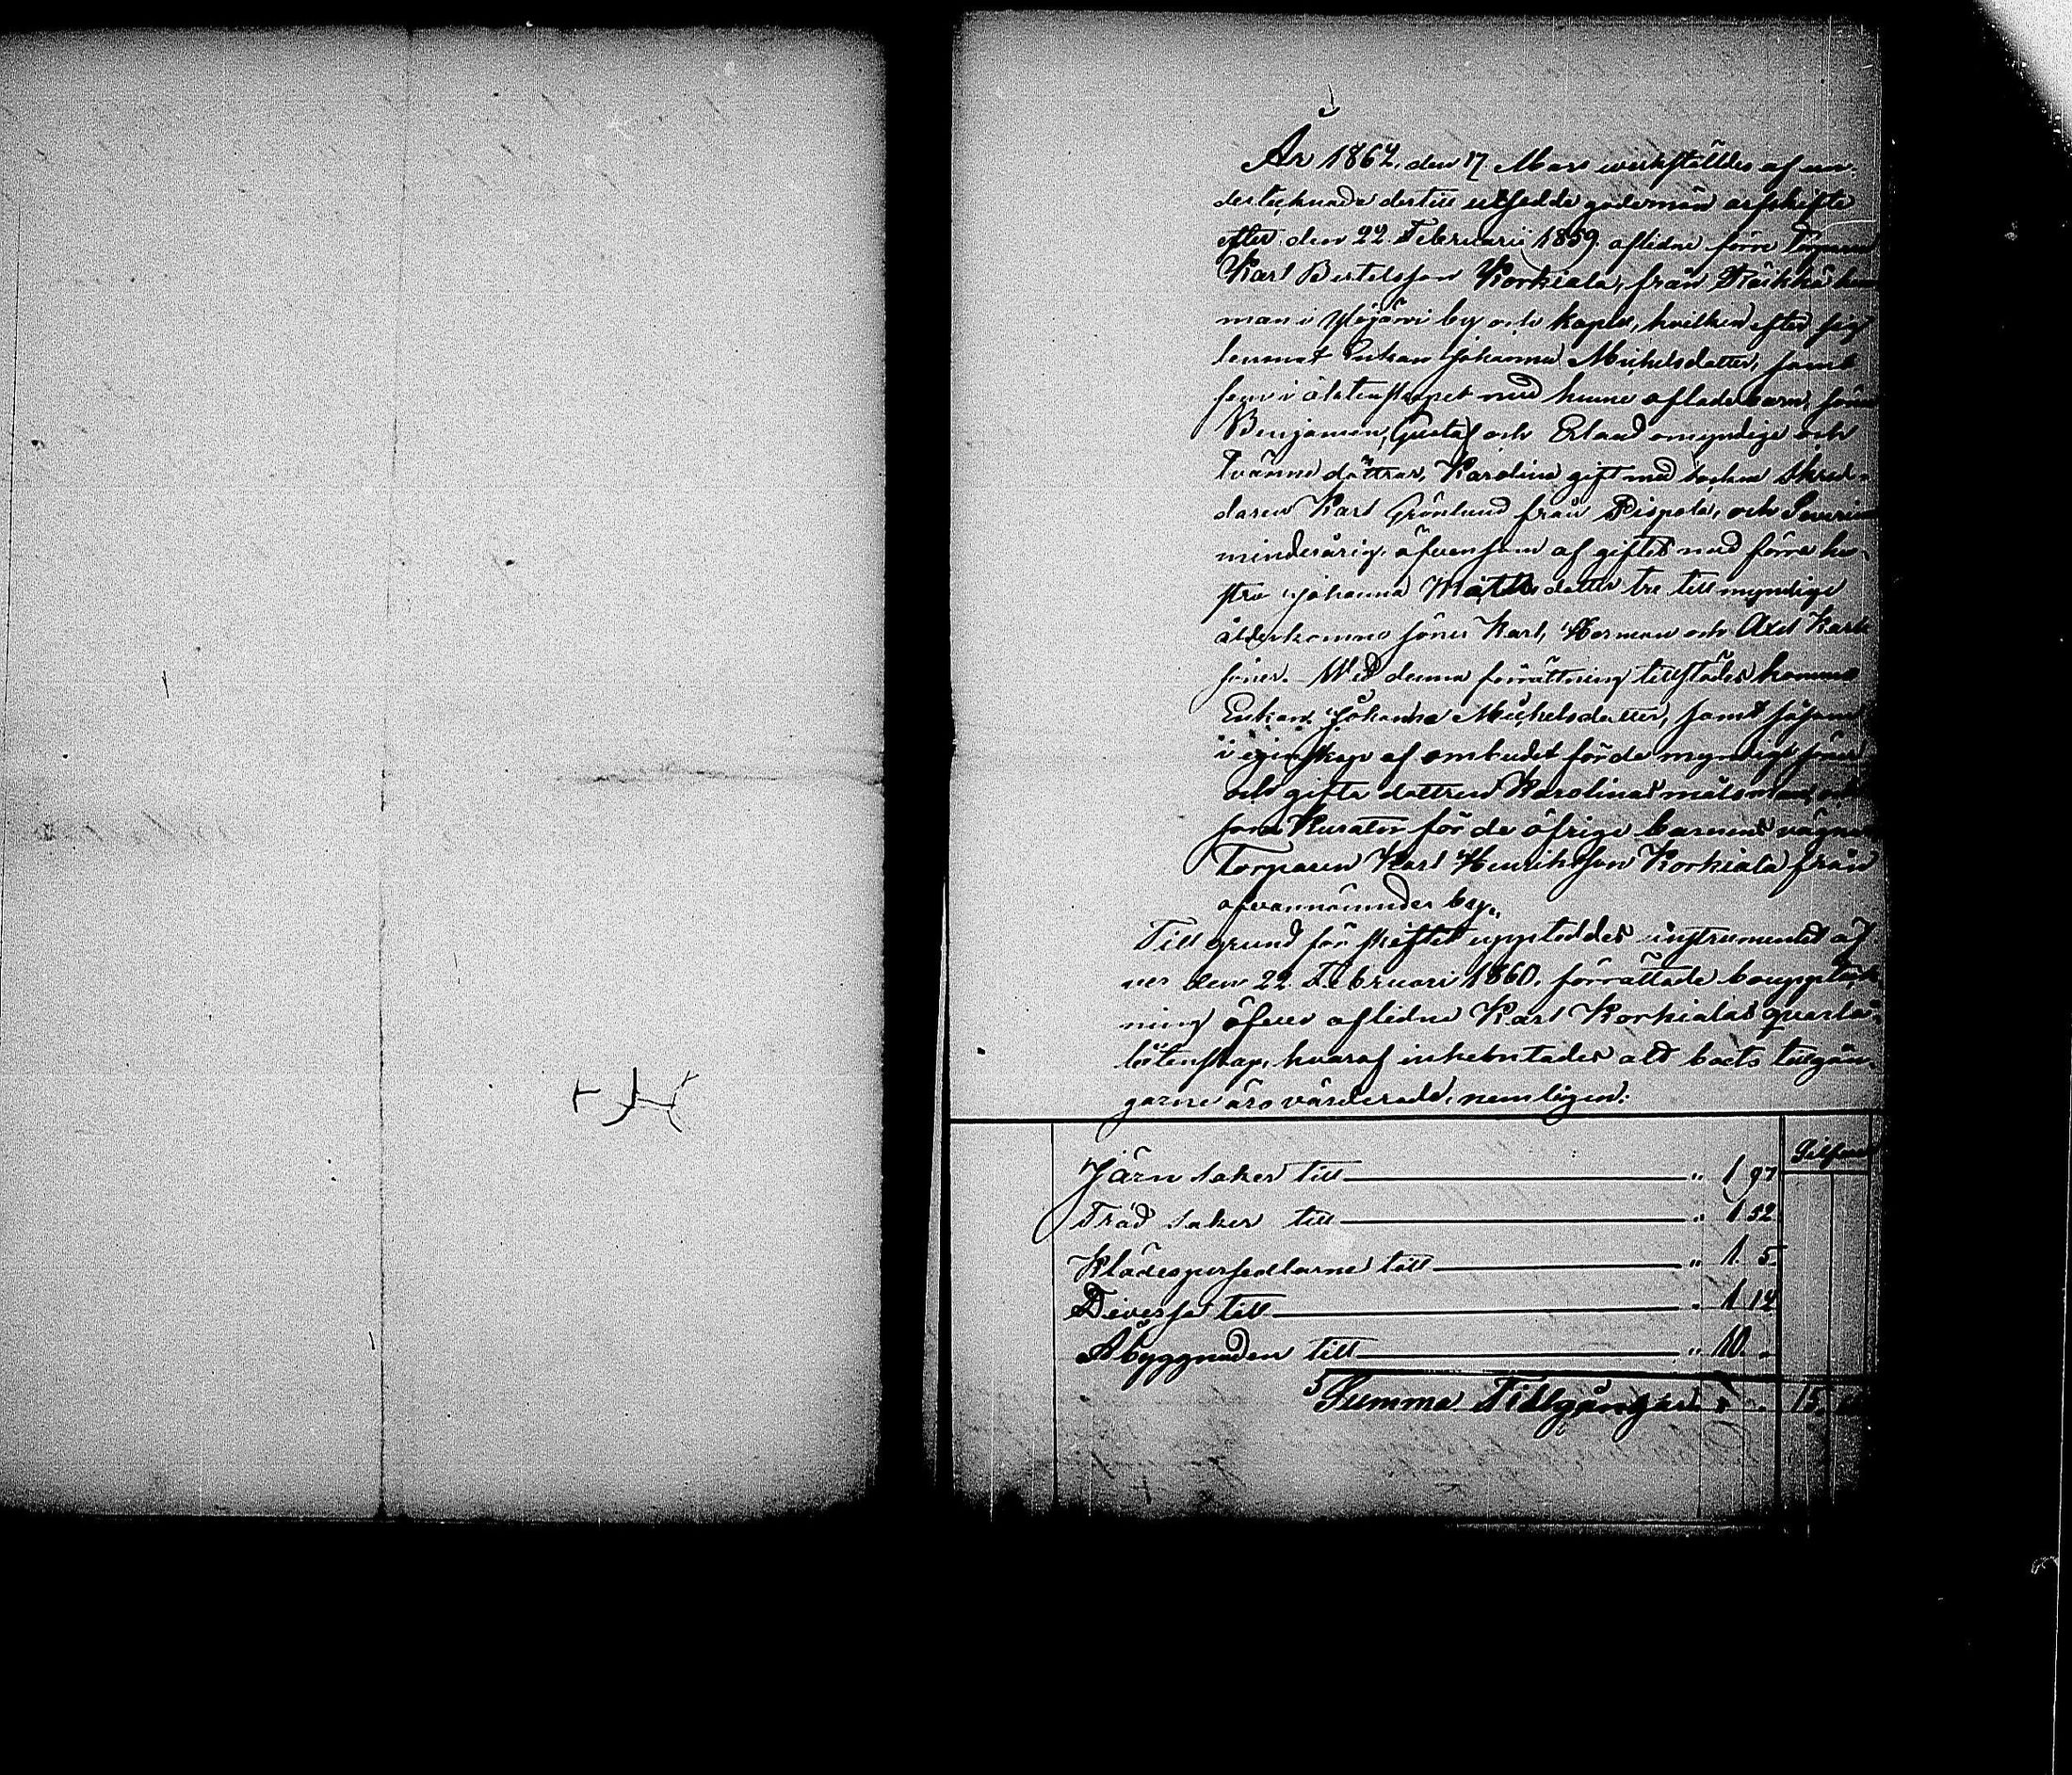 År 1862, den 17 Mars werkställdes af un-
dertecknade dertill utsedde godemän arfskifte
efter den 22 Februarii 1859 aflidne förre
Karl Bertelsson Korkiala, från Räikkä hem
man i Ylöjärvi by och kapell, hvilken efter sig
lemnat Enkan Johanna Michelsdotter, samt
fem i äktenskapet med henne aflade barn, söner
Benjamin, Gustaf och Erland omyndige och
Tvänne döttrar, Karolina gift med socken skräd-
daren Karl Grönlund från Pispala, och Severina
minderårig, äfvensom af giftet med förre hu-
stru Johanna Matts dotter tre till myndige
ålder komne söner Karl, Herman och Axel Karls
söner. Wid denna förrättning tillstädes kommo
Enkan Johanna Michelsdotter, samt såsom
i egenskap af ombudet för de myndige söner
och gifta dottren Karolinas målsman och
som Kurator för de öfrige barnens vägnar
Torparen Karl Henriksson Korkiala från
ofvannämnder by.
Till grund för skiftet uppteddes instrumentet öf-
ver den 22 Februari 1860, förrättade boupptek
ning öfver aflidne Karl Korkialas qvarlå-
tenskap, hvaraf inhemtades att boets tillgån-
garne äro värderade, nemligen:
Silfver
Järn saker till " 1 97
Träd saker till " 1 52
Klädespersedlarne till " 1. 5.
Diverse till " 1 14
Åbyggnaden till " 10. "
Summa Tillgångar 15.